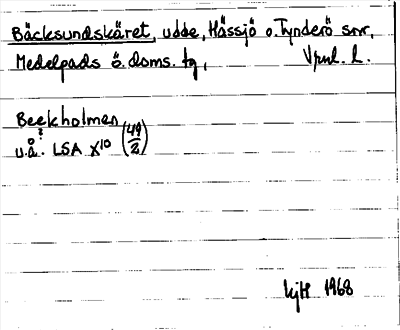 Bäcksundskäret, udde, Hässjö o. Tynderö snr,
Medelpads ö. doms. tg, Vpnl. l.
Beckholmen
u.å. LSA X10 (49/2)
1968